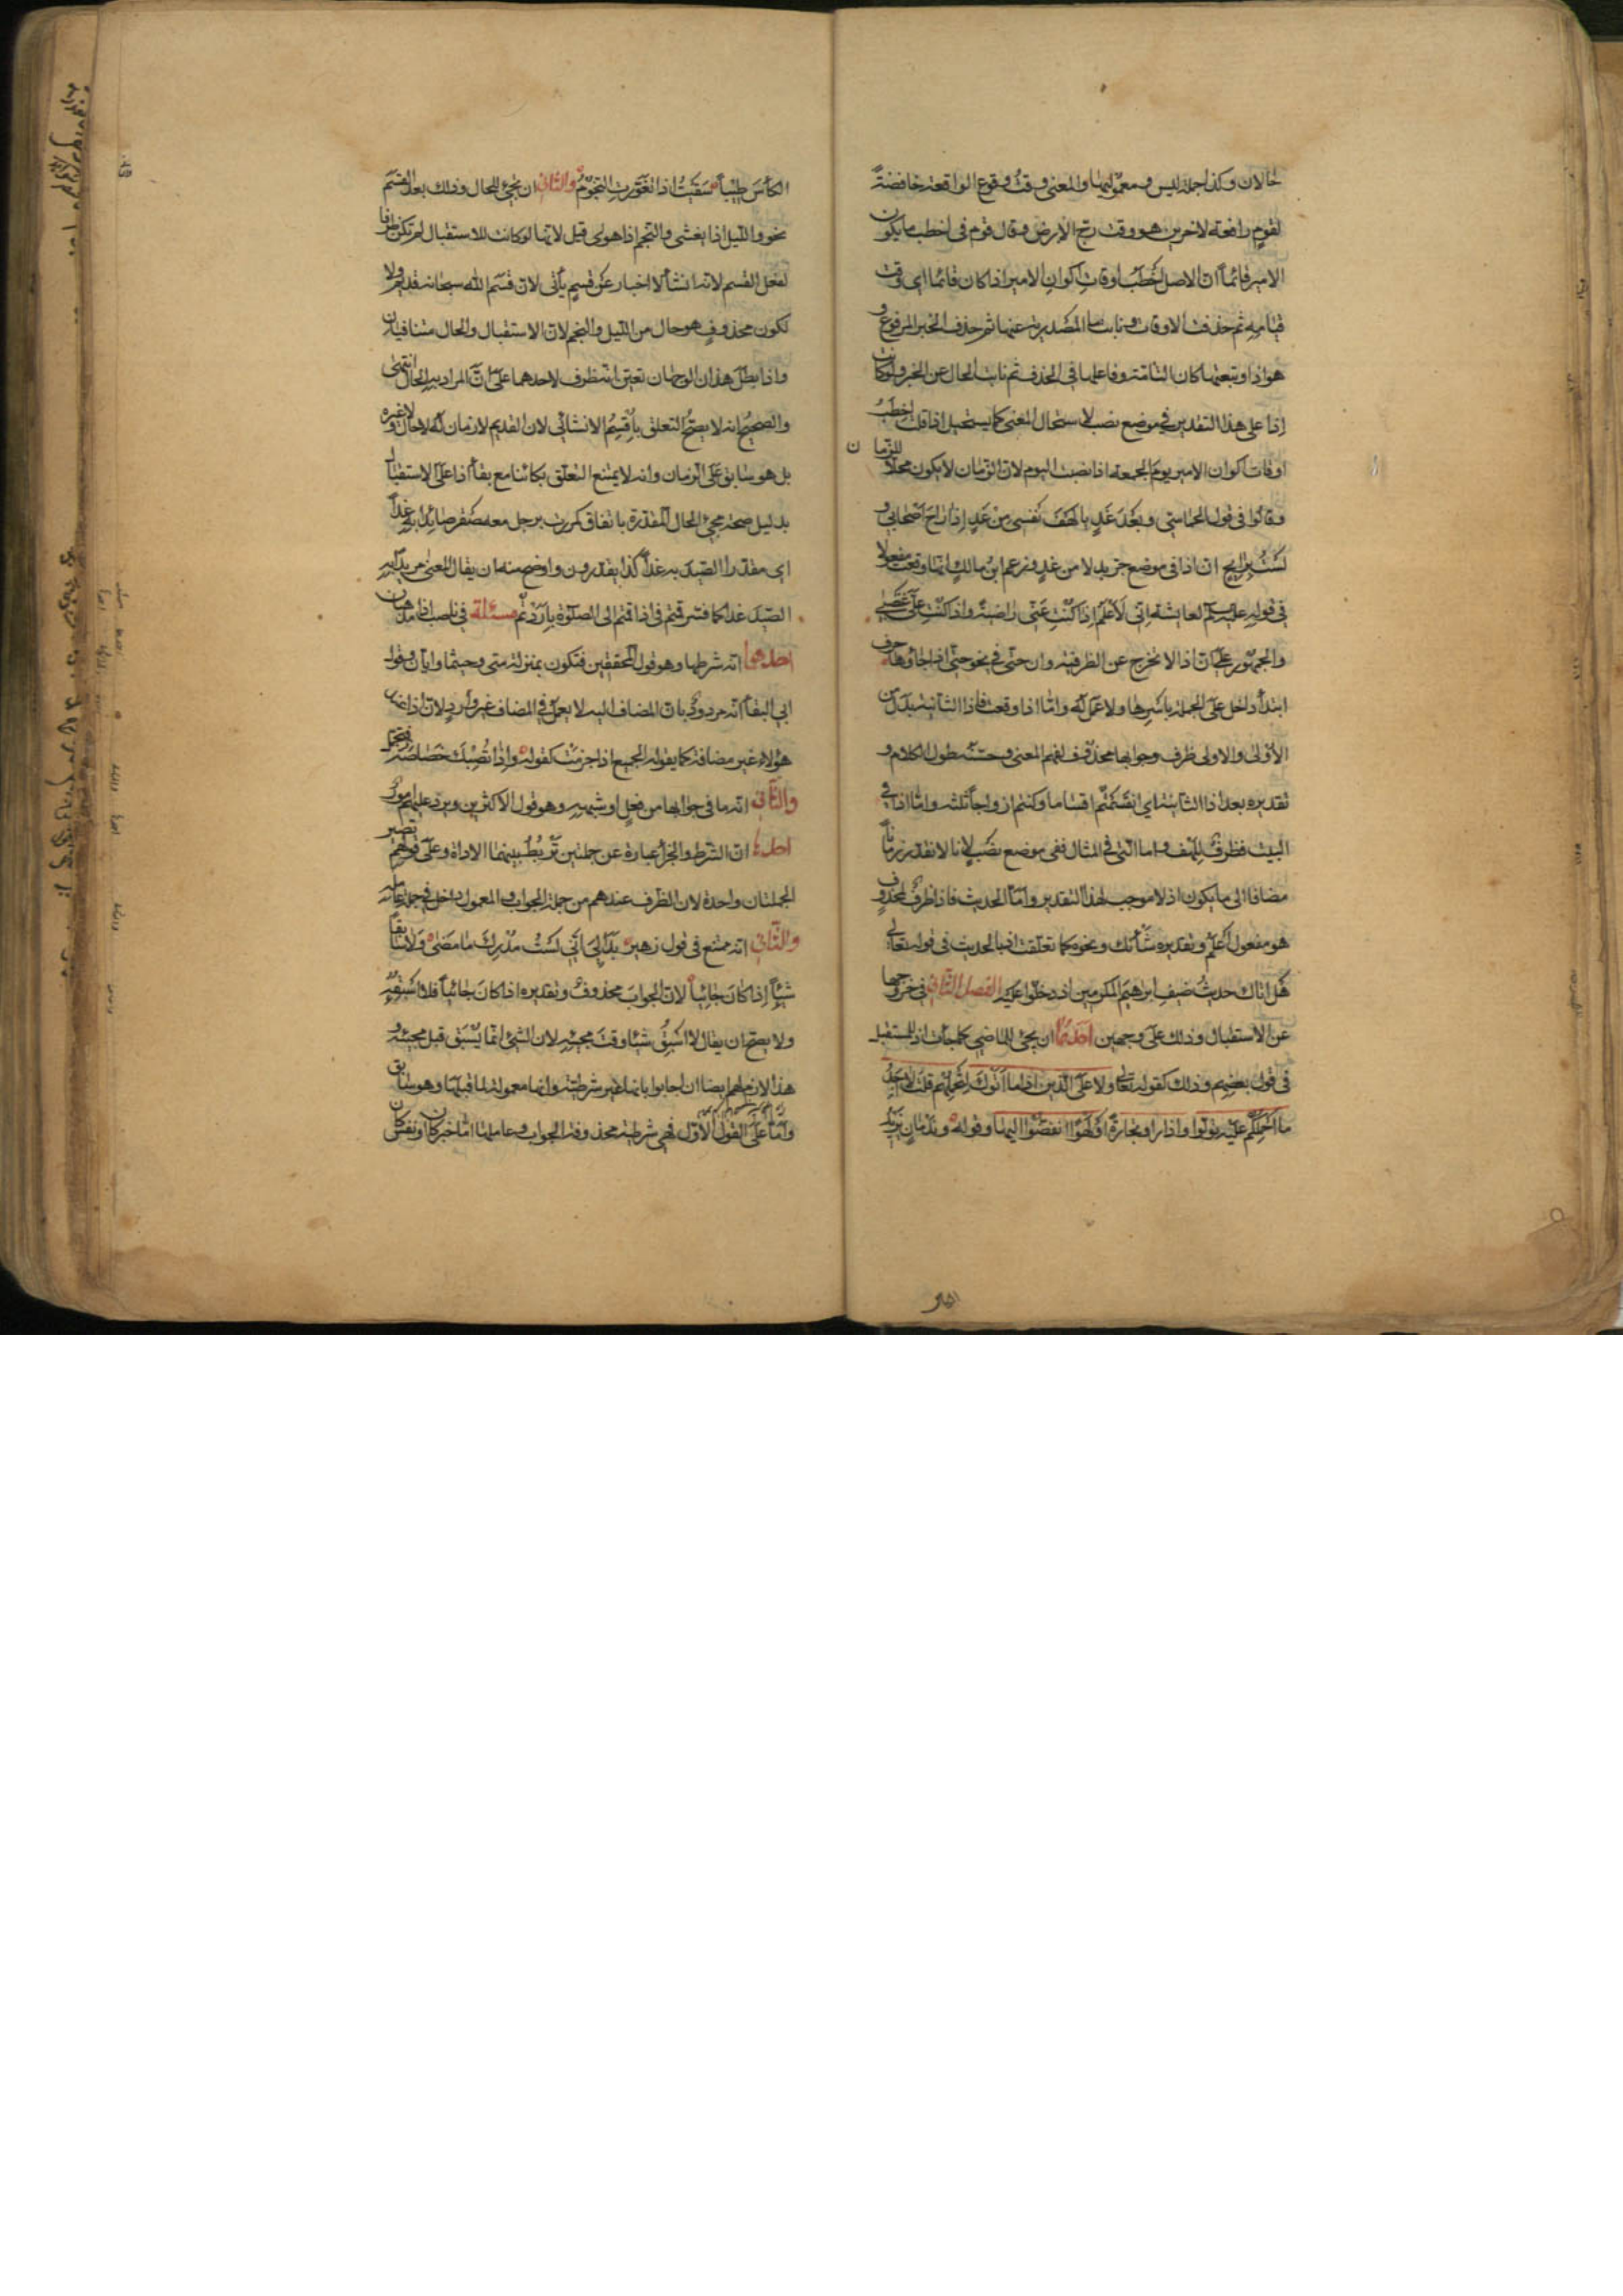 حالان وكذا جملة ليس ومعموليها والمعنى وقت وقوع الواقعة خافضةً
لقومٍ رافعة لآخرين هو وقت رجّ الارض وقال قوم فى اخطب ما يكون
الامير قائماً ان الاصل اخطب اوقات اكوان الامير اذا كان قائما اى وقت
قيامه ثم حذفت الاوقات ونابت ما المصدرية عنها ثم حذف الخبر المرفوع و
هو اذا وتبعتها كان التامّة وفاعلها فى الحذف ثم نابت الحال عن الخبر ولو كانت
اذا على هذا التقدير فى موضع نصب لاستحال المعنى كما يستحيل اذا قلت اخطب
اوقات اكوان الامير يوم الجمعة اذا نصبت اليوم لان الزمان لا يكون محلا للزمان
وقالوا فى قول الحماسىّ وبَعْدَ غَدٍ يا لَهْفَ نَفْسى مِنْ غَدٍ اِذا راحَ اَصْحابى و
لَسْتُ بِرايحٍ ان اذا فى موضع جرّ بدلا من غدٍ وزعم ابن مالك انها وقعت مفعولا
فى قوله عليه السلم لعايشة اِنّى لَاَعْلَمُ اِذا كُنْتِ عَنّى راضِيةً واذا كُنْتِ علىَّ غَضْبى
والجمهور على ان اذا لا تخرج عن الظرفية وان حتى فى نحو حتى اذا جاؤها حرف
ابتدأ داخل على الجملة باسرها ولا عمل له واما اذا وقعت فاذا الثانية بدل من
الاولى والاولى ظرف وجوابها محذوف لفهم المعنى وحسّنه طول الكلام و
تقديره بعد اذا الثانية اى انقسمتم اقساما وكنتم ازواجاً ثلثة واما اذا فى
البيت فظرف للهف واما التى فى المثال ففى موضع نصب لانا لا نقدر زماناً
مضافا الى ما يكون اذ لا موجب لهذا التقدير واما الحديث فاذا ظرفٌ لمحذوف
هو مفعول اَعْلَمُ وتقديره شأنك ونحوه كما تعلّقت اذ بالحديث فى قوله تعالى
هَل اَتاك حديثُ ضَيفِ ابرهيمَ المكرمين اذ دخلوا عليه الفصل الثانى فى خروجها
عن الاستقبال وذلك على وجهين احدهما ان يجئ للماضى كما جائت اذ للمستقبل
فى قول بعضهم وذلك كقوله تعالى ولا على الّذين اذا ما اَتَوْكَ لِتَحْمِلَهُم قلتَ لا اَجِدُ
ما اَحْمِلُكُمْ عليه تولّوا واذا راوا تجارةً اَوْ لَهْوًا انفضّوا اليها وقوله وندمانٍ يزيد
الكأسَ طِيباً سَقَيتُ اذا تغوّرتِ النجومُ والثانى ان تجئ للحال وذلك بعد القسم
نحو والليل اذا يغشى والنجم اذا هوى قيل لانها لو كانت للاستقبال لم تكن ظرفا
لفعل القسم لانه انشأ لا اخبار عن قسمٍ يأتى لان قسم الله سبحانه قديم ولا
لكون محذوفٍ هو حال من الليل والنجم لان الاستقبال والحال متنافيان
واذا بطل هذان الوجهان تعيّن انه ظرف لاحدهما على انّ المراد به الحال انتهى
والصحيح انه لا يصحّ التعلق باُقسِمُ الانشائى لان القديم لا زمان له لا حال ولا غيره
بل هو سابق على الزمان وانه لا يمتنع التعلّق بكائنا مع بقأ اذا على الاستقبال
بدليل صحة مجئ الحال المقدّرة باتفاق كمررت برجل معه صقر صائدا به غداً
اى مقدّرا الصيد به غداً كذا يقدرون واوضح منه ان يقال المعنى مريدا به
الصيد غدا كما فسر قمتم فى اذا قمتم الى الصلوة باردتم مسئلة فى ناصب اذا مذهبان
احدهما انه شرطها وهو قول المحققين فتكون بمنزلة متى وحيثما وايان وقول
ابى البقأ انه مردود بان المضاف اليه لا يعمل فى المضاف غير وارد لان اذا عند
هؤلاء غير مضافة كما يقوله الجميع اذا جزمت كقوله واِذا تُصِبْكَ خَصاصَةٌ فتحمّل
والثانى انه ما فى جوابها من فعلٍ او شبهه وهو قول الاكثرين ويرد عليهم امور
احدها ان الشرط والجزأ عبارة عن جملتين تَرْبُطُ بينهما الاداة وعلى قولهم تصير
الجملتان واحدة لان الظرف عندهم من جملة الجواب والمعمول داخل فى جملة عامله
والثانى انه ممتنع فى قول زهير بَدا لِىَ اَنّى لَسْتُ مُدْرِكَ ما مَضى وَلا سابقاً
شَيْئاً اِذا كانَ جائِياً لان الجواب محذوف وتقديره اذا كان جائياً فلا اَسْبِقُه
ولا يصح ان يقال لا اَسْبِقُ شيئا وقتَ مجيئه لان الشئ انما يُسْبَق قبل مجيئه و
هذا لازم لهم ايضا ان اجابوا بانها غير شرطية وانها معمولة لما قبلها وهو سابق
واما على القول الاوّل فهى شرطية محذوفة الجواب وعاملها اما خبر كان او نفس كان